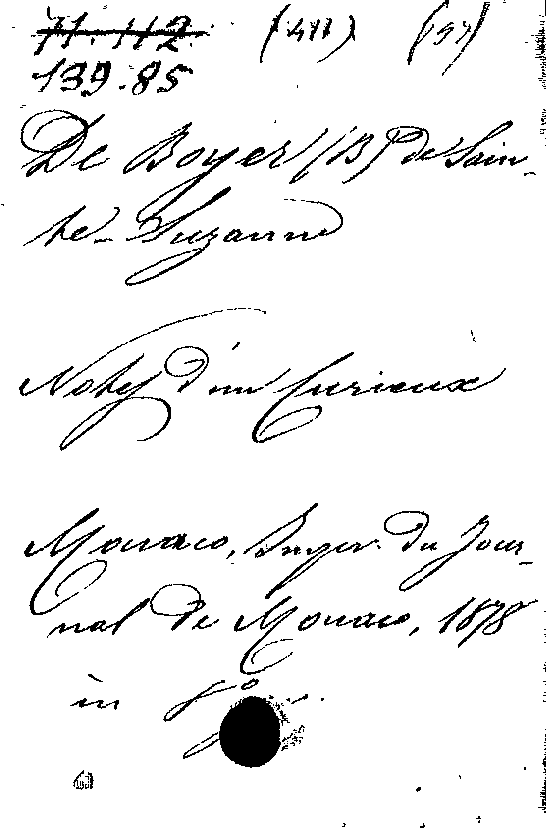 71.112 (411) (57)
139.85
De Boyer (B) de Sain-
te-Suzanne
Notes d'un Curieux
Monaco, Imper. du Jour-
nal de Monaco, 1878
in 8º